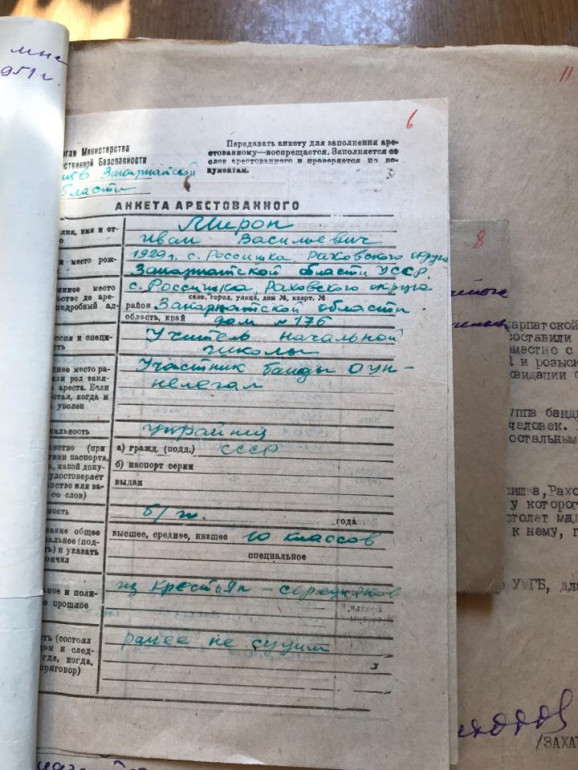 мне
951 г.
11
6
Министерства
ственной Безопасности
Закарпатской
области
Передавать анкету для заполнения аре-
стованному—воспрещается. Заполняется со
слов арестованного и проверяется по до-
кументам.
АНКЕТА АРЕСТОВАННОГО
лия, имя и от-
Мирон
Иван Васильевич
и место рож-
1929 г. с. Россишка Раховского округа
Закарпатской области УССР.
нное место
ьство до аре-
подробный ад-
с. Россишка, Раховского округа
село, город, улица, дом №, кварт. №
район Закарпатской области
область, край дом № 176
ссия и специ-
ть
Учитель начальной
школы
нее место ра-
ли род заня-
ареста. Если
отал, когда и
уволен
Участник банды ОУН-
нелегал
альность
украинец
нство (при
паспорта,
, какой доку-
удостоверяет
нство или за-
со слов)
а) гражд. (подд.) СССР
б) паспорт серии
выдан
ность
б/п.
года
ание общее
альное (под-
ть) и указать
ончил
высшее, среднее, низшее 10 классов
специальное
ное и поли-
прошлое
из крестьян – середняков
ть (состоял
дом и след-
где, когда,
приговор)
ранее не судим
8
арпатской
оставили
местно с
и розыск
квидации
руппа банд
человек.
остальным
ишка, Рахо
у которог
к нему, г
УМГБ, дл
/ЗАХА